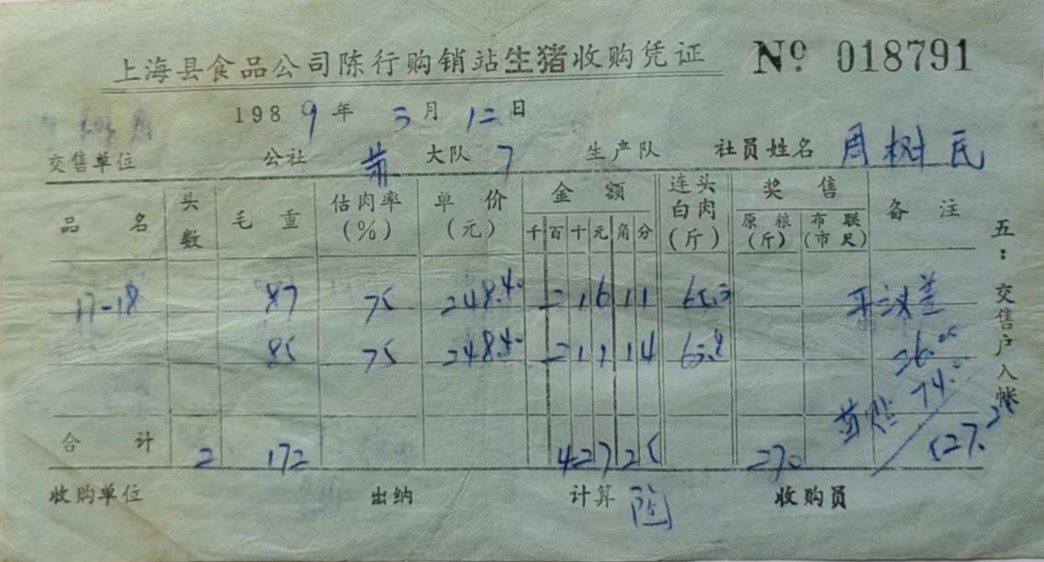 上海县食品公司陈行购销站生猪收购凭证 Nº 018791
1989年 3月 12日
交售单位 公社 大队 7 生产队 社员姓名 周树民
品名 头数 毛重 估肉率(%) 单价(元) 金额 千百十元角分 连头白肉(斤) 奖售 原粮(斤) 布联(市尺) 备注
17-18 87 75 248.40 21611
85 75 248.40 21114 63.8
26.
74.
合计 2 172 42725 270 527.2
收购单位 出纳 计算 陶 收购员
五：交售户入帐